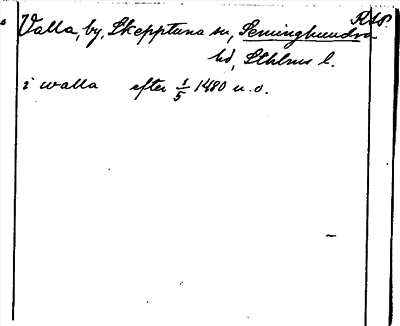 RAP.
Valla, by, Skepptuna sn, Seminghundra
hd, Sthlms l.
i walla efter 1/5 1480 u.o.